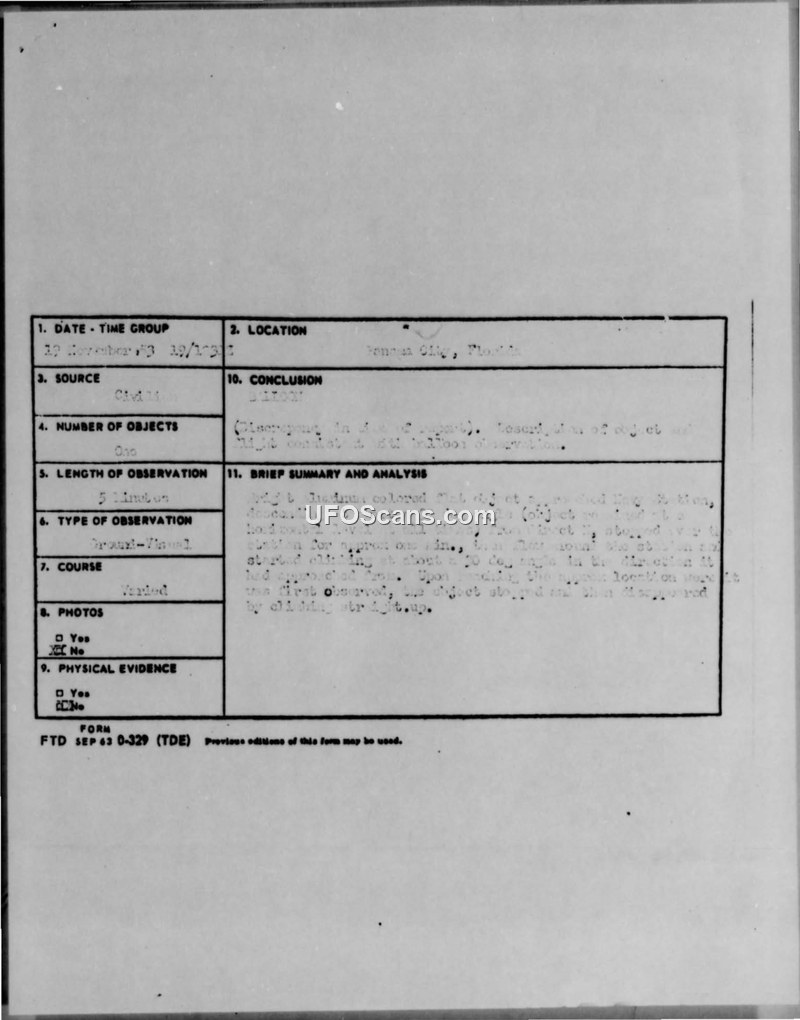 1. DATE - TIME GROUP
19 November 63
2. LOCATION
Panama City, Florida
3. SOURCE
Civilian
10. CONCLUSION
BALLOON
(Discrepancy in time of report). Description of object and
flight consistent with balloon observation.
4. NUMBER OF OBJECTS
One
5. LENGTH OF OBSERVATION
5 Minutes
11. BRIEF SUMMARY AND ANALYSIS
Bright aluminum colored flat object approached Navy station,
(object
horizontal level stopped over
station for approx one min., then flew around the station and
started climbing at about a 30 deg angle in the direction it
had approached from. Upon reaching the approx location where it
was first observed, the object stopped and then disappeared
by climbing straight up.
6. TYPE OF OBSERVATION
Ground-Visual
7. COURSE
Varied
8. PHOTOS
□ Yes
No
9. PHYSICAL EVIDENCE
□ Yes
No
FORM
FTD SEP 63 0-329 (TDE) Previous editions of this form may be used.
UFOScans.com